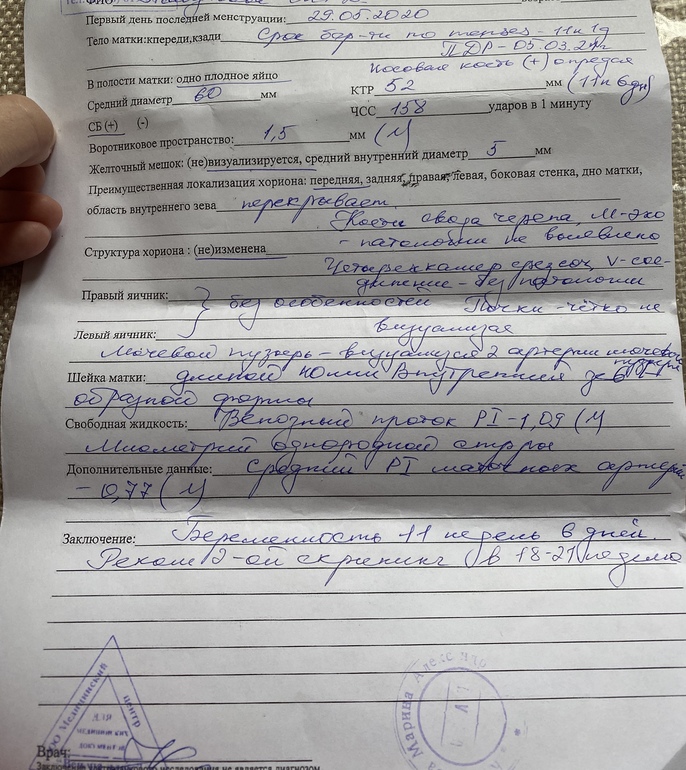 Первый день последней менструации: 29.05.2020
Тело матки:кпереди,кзади Срок бер-ти по menses - 11н 1д
ПДР - 05.03.21г
Носовая кость (+) определ
В полости матки: одно плодное яйцо
КТР 52 мм (11н 6дн)
Средний диаметр 60 мм
ЧСС 158 ударов в 1 минуту
СБ (+) (-)
Воротниковое пространство: 1,5 мм (N)
Желточный мешок: (не)визуализируется, средний внутренний диаметр 5 мм
Преимущественная локализация хориона: передняя, задняя, правая, левая, боковая стенка, дно матки,
область внутреннего зева перекрывает.
Кости свода черепа, М-эхо
- патологии не выявлено
Структура хориона : (не)изменена
Четырехкамер срез соч, V-сое-
динение - без патологии
Правый яичник:
без особенностей Почки - чётко не
визуализ
Левый яичник:
Мочевой пузырь - визуализ 2 артерии мочевого
пузыря
Шейка матки: длиной 40мм Внутренний зев
образной формы
Свободная жидкость: Венозный проток PI-1,09 (N)
Миометрий однородной стр-ры
Дополнительные данные: Средний PI маточных артерий
- 0,77 (N)
Заключение: Беременность 11 недель 6 дней.
Реком 2-ой скрининг в 18-21 неделю
Медицинский
центр
ДЛЯ
Марина Александр
Врач: